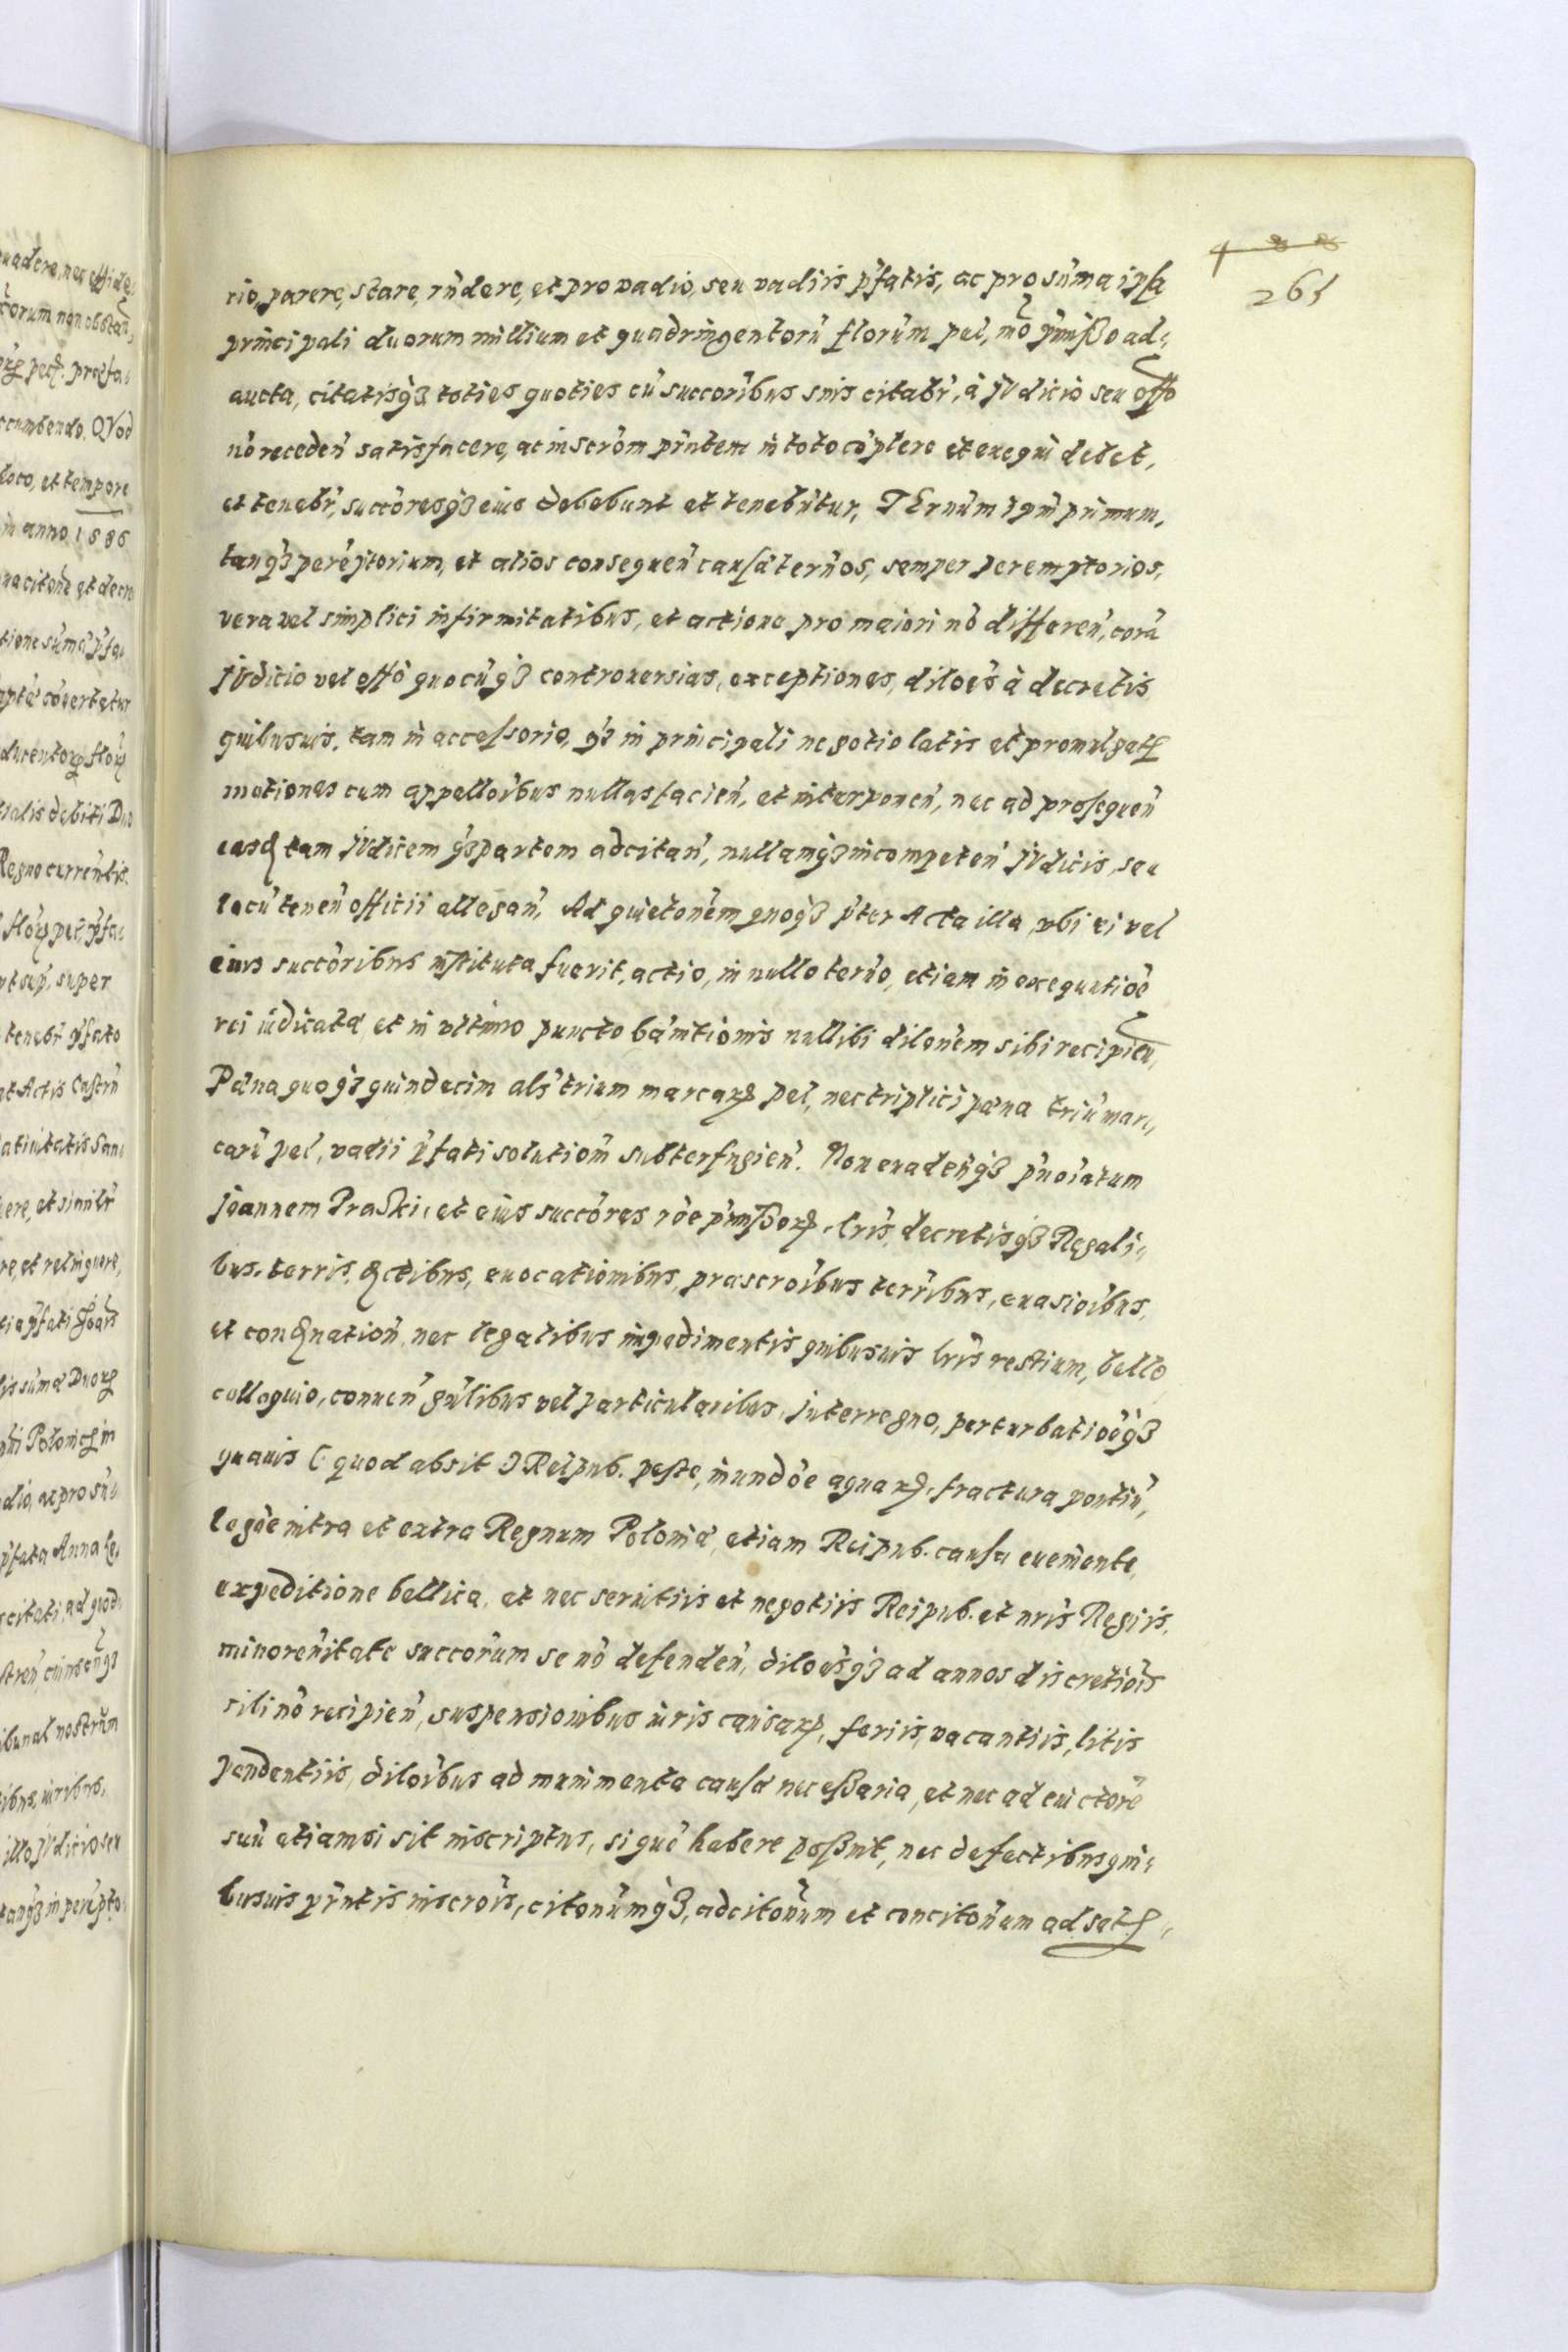 488
265
rio, parere, stare, rn̄dere, et pro vadio, seu vadiis p̄fatis, ac pro sūma ipsa
principali duorum millium et quadringentorū florūm pel, mō p̄mißo ad¬
aucta, citatisq́ꝫ toties quoties cū succoribus suis citabr̄, à Iudicio seu offo
nō receden̄ satisfacere, ac inscrōm pn̄tem in toto cōplere et exequi debet,
et tenebr̄, succōresq́ꝫ eius debebunt et tenebūtur, TErnum ipm̄ primum,
tanq́ꝫ perēptorium, et alios consequen̄ causā tern̄os, semper peremptorios,
vera vel simplici infirmitatibus, et actione pro maiori nō differen̄, corā
Iudicio vel offō quocūq́ꝫ controversias, exceptiones, diloēs à decretis
quibusuis, tam in accessorio, q́ꝫ in principali negotio latis et promulgatꝭ
motiones cum appellōibus nullas facien̄, et interponen̄, nec ad prosequen̄
easꝗ tam Iudicem q́ꝫ partem adcitan̄, nullamq́ꝫ incompeten̄ Iudicis, seu
locū tenen̄ officii allegan̄, Ad quietōnem quoq́ꝫ p̄ter Acta illa, vbi ei vel
eius succōribus instituta fuerit, actio, in nullo tern̄o, etiam in exequutiōe
rei iudicatæ, et in vltimo puncto bānitionis nullibi dilōnem sibi recipien̄,
Pœna quoq́ꝫ quindecim als̄ trium marcarꝝ pel, nec triplici pœna triū mar¬
carū pel, vadii p̄fati solutiōm subterfugien̄. Non evaden̄q́ꝫ p̄noīatum
Joannem Praski, et eius succōres rōe p̄mißorꝝ, lr̄is, decretisq́ꝫ Regali¬
bus, terris, ꝗctibus, evocationibus, præscrōibus terr̄ibus, euasiōibus,
et conꝗnation̄, nec legalibus impedimentis quibusuis lr̄is restium, bello,
colloquio, conuen̄ gn̄libus vel particularibus, Interregno, perturbatiōeq́ꝫ
quauis (: quod absit :) Reipub. peste, inundōe aquarꝝ, fractura pontiū,
legōe intra et extra Regnum Poloniæ, etiam Reipub. causa eveniente,
expeditione bellica, et nec seruitiis et negotiis Reipub. et nr̄is Regiis,
minoren̄itate succōrum se nō defenden̄, diloēsq́ꝫ ad annos discretiōis
sibi nō recipien̄, suspensionibus iuris causarꝝ, feriis, vacantiis, litis
pendentiis, dilōibus ad munimenta causæ necessaria, et nec ad evictorē
suū etiamsi sit inscriptus, si quē habere poßnt, nec defectibus qui¬
busuis pn̄tis inscrōis, citonūmq́ꝫ, adcitōnum et concitōnum ad satꝭ,